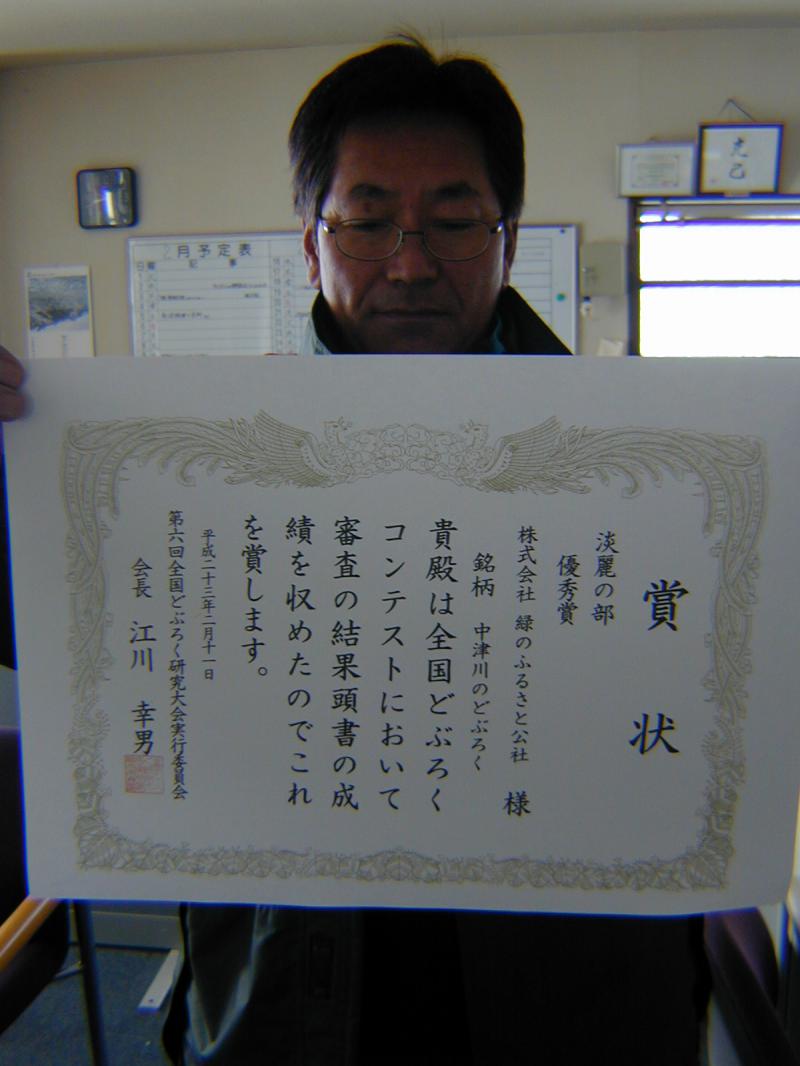 賞状
淡麗の部
優秀賞
株式会社 緑のふるさと公社 様
銘柄 中津川のどぶろく
貴殿は全国どぶろく
コンテストにおいて
審査の結果頭書の成
績を収めたのでこれ
を賞します。
平成二十三年二月十一日
第六回全国どぶろく研究大会実行委員会
会長 江川 幸男
2月予定表
日曜
記事
克己